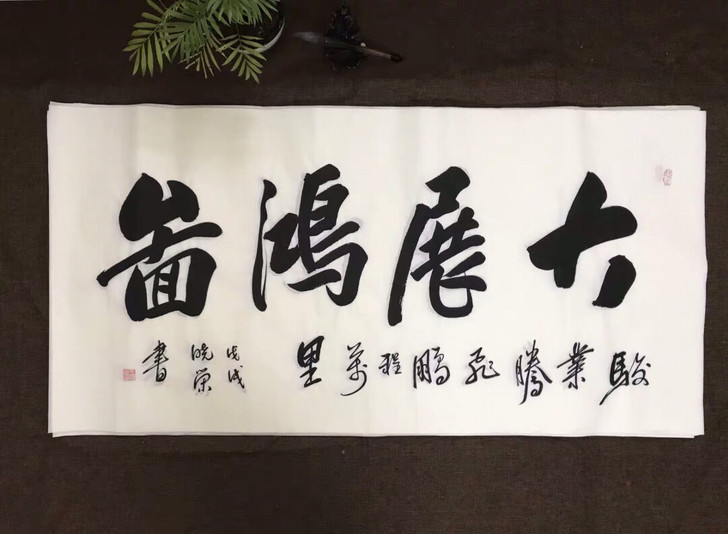 大展鴻啚
駿業騰飛鵬程萬里
戊戌
曉榮
書